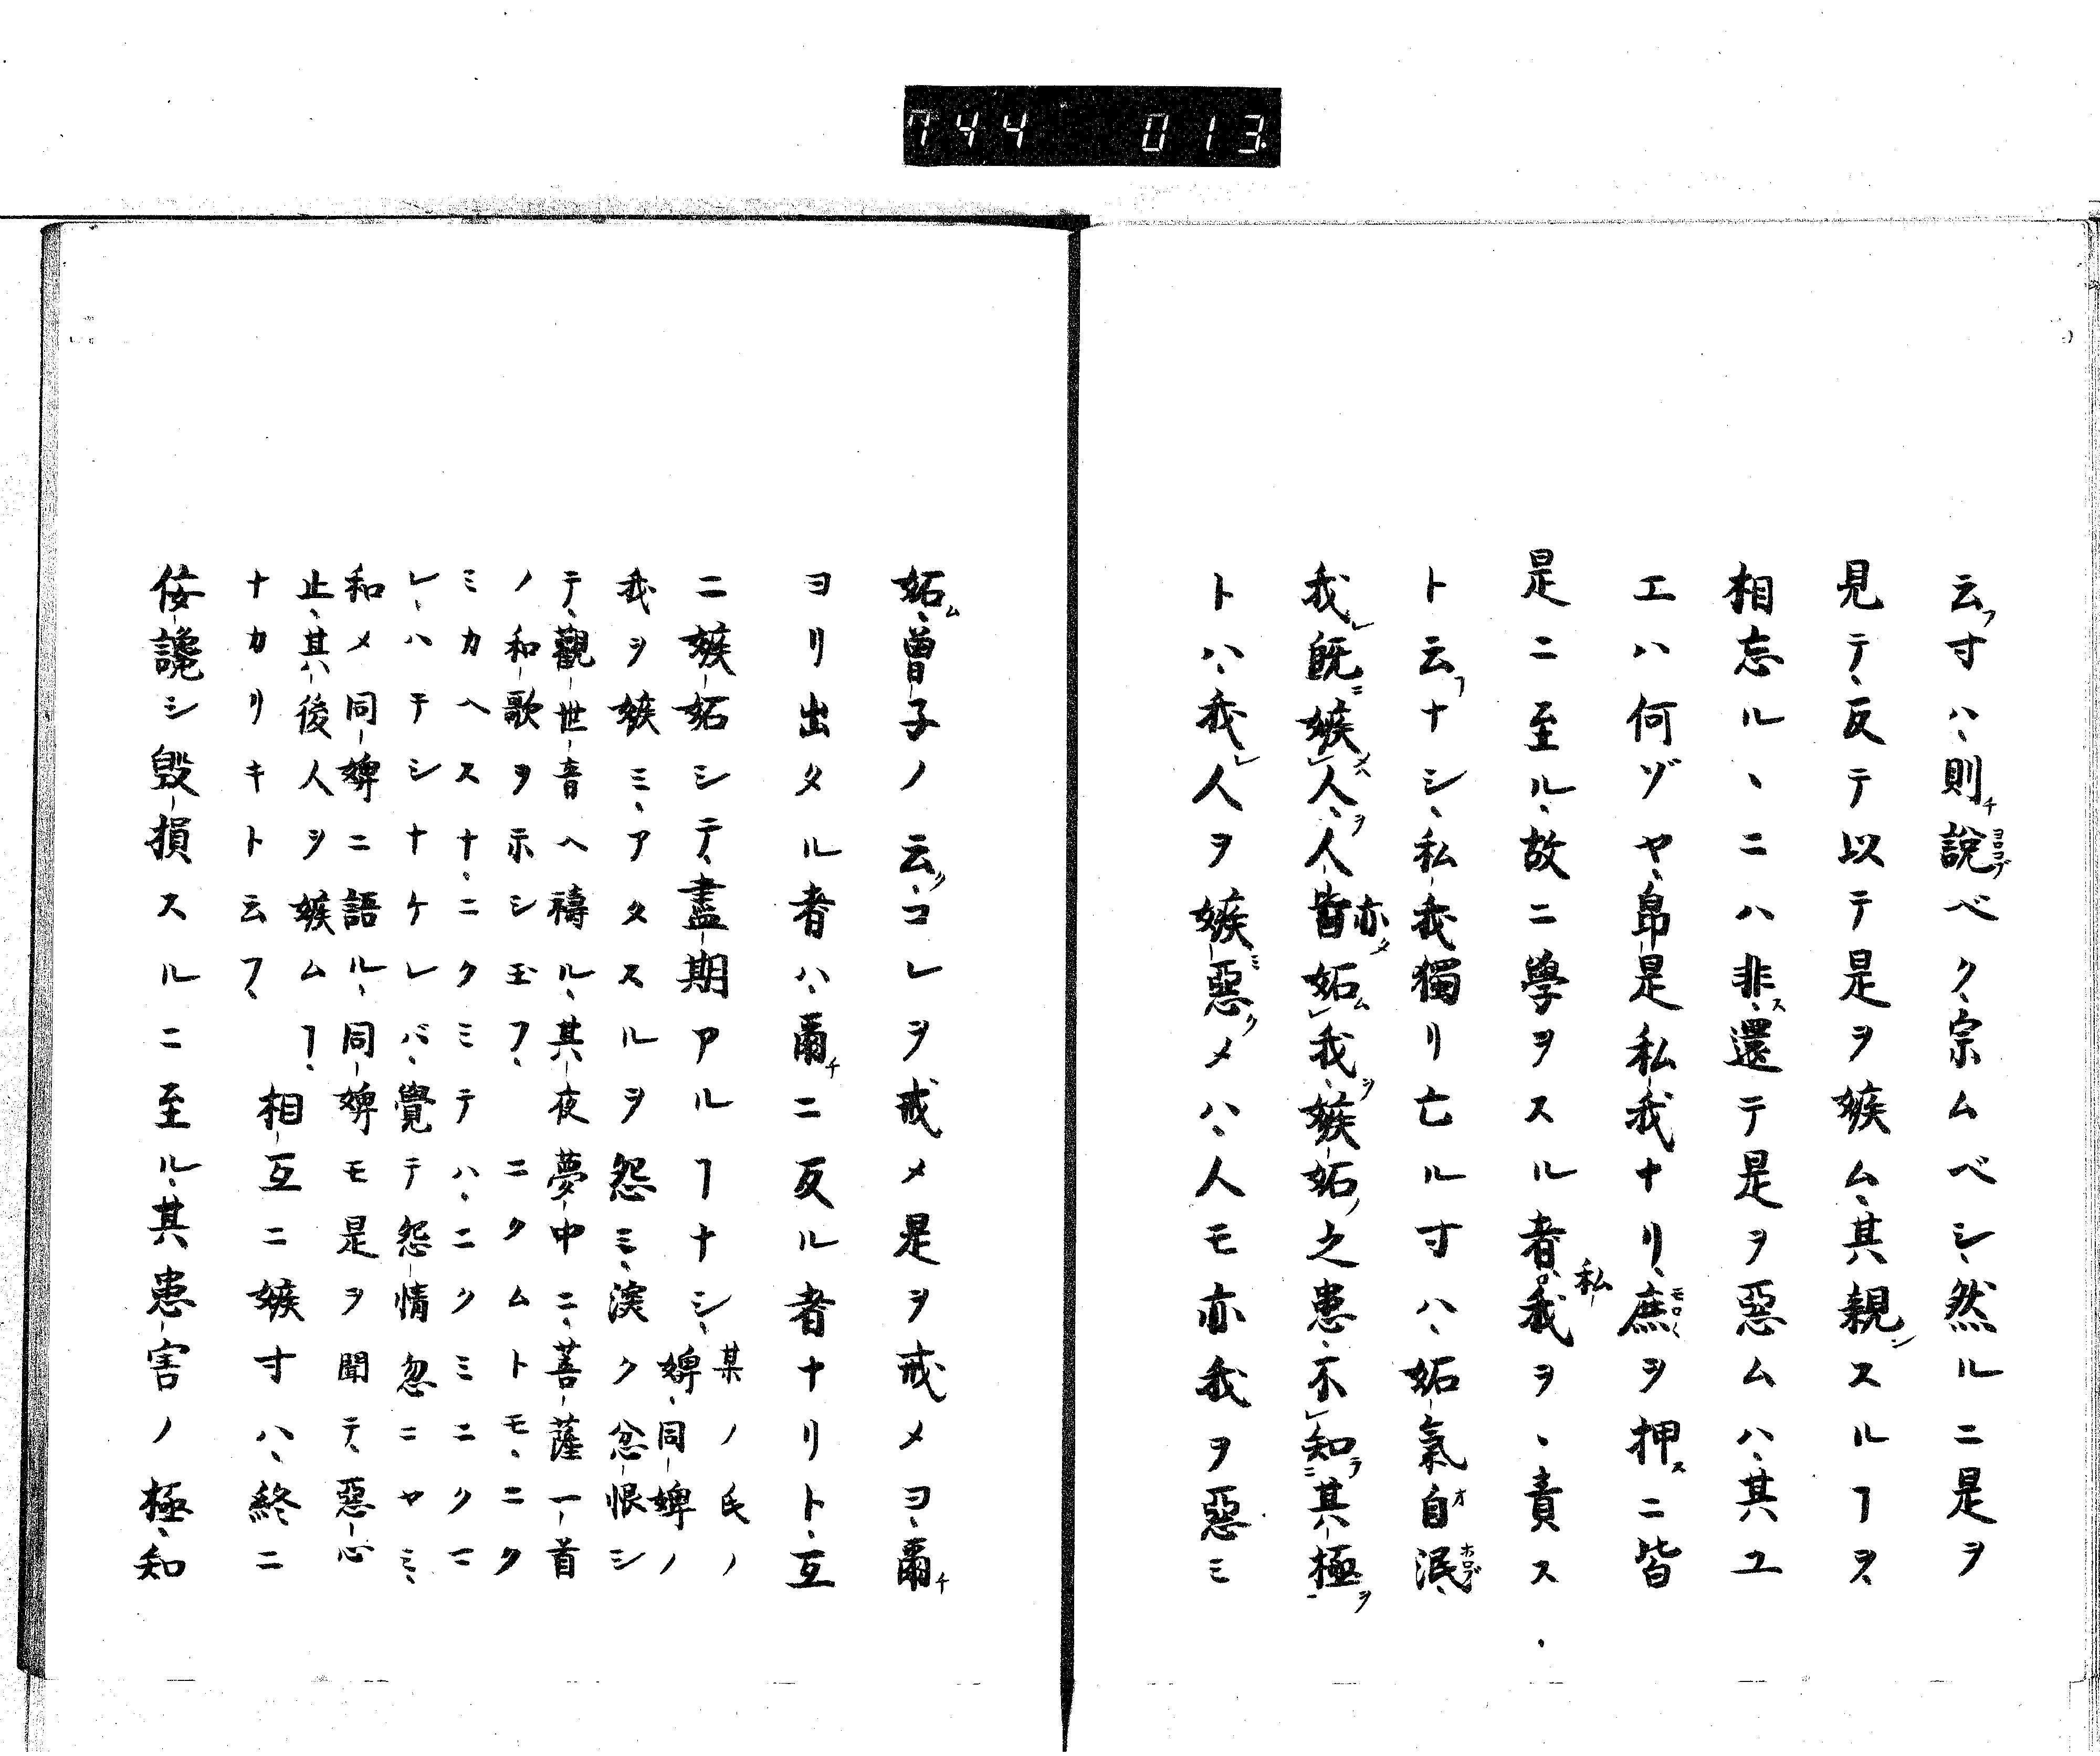 744 013.
云フ寸ハ、則チ説ヨロコブベク、宗ムベシ、然ルニ是ヲ
見テ、反テ以テ是ヲ嫉ム、其親シスルヿヲ、
相忘ル、ニハ非ス、還テ是ヲ惡ムハ、其ユ
エハ何ゾヤ、帠是私我ナリ、庶モロ〱ヲ押スニ皆
是ニ至ル、故ニ學ヲスル者、私我ヲ、責ス
ト云フナシ、私我獨リ亡ル寸ハ、妬氣自オ泯ホロブ、
我レ既ニ嫉メハレ人ヲ、人皆亦タ妬ムレ我ヲ、嫉妬ノ之患、不レ知ラ其極ヲ
トハ、我レ人ヲ嫉ミ惡クメハ、人モ亦我ヲ惡ミ
妬ム、曽子ノ云ク、コレヲ戒メ是ヲ戒メヨ、爾チ
ヨリ出タル者ハ、爾チニ反ル者ナリト、互
ニ嫉妬シテ、盡期アルヿナシ、某ノ氏ノ
婢、同婢ノ
我ヲ嫉ミ、アタスルヲ怨ミ、深ク忿恨シ
テ、觀世音ヘ禱ル、其夜夢中ニ、菩薩一首
ノ和歌ヲ示シ玉フ、ニクムトモ、ニク
ミカヘスナ、ニクミテハ、ニクミニクマ
レ、ハテシナケレバ、覺テ怨情忽ニヤミ、
和メ同婢ニ語ル、同婢モ是ヲ聞テ、惡心
止、其後人ヲ嫉ムヿ、
ナカリキト云フ、相互ニ嫉寸ハ、終ニ
佞讒シ毀損スルニ至ル、其患害ノ極、知